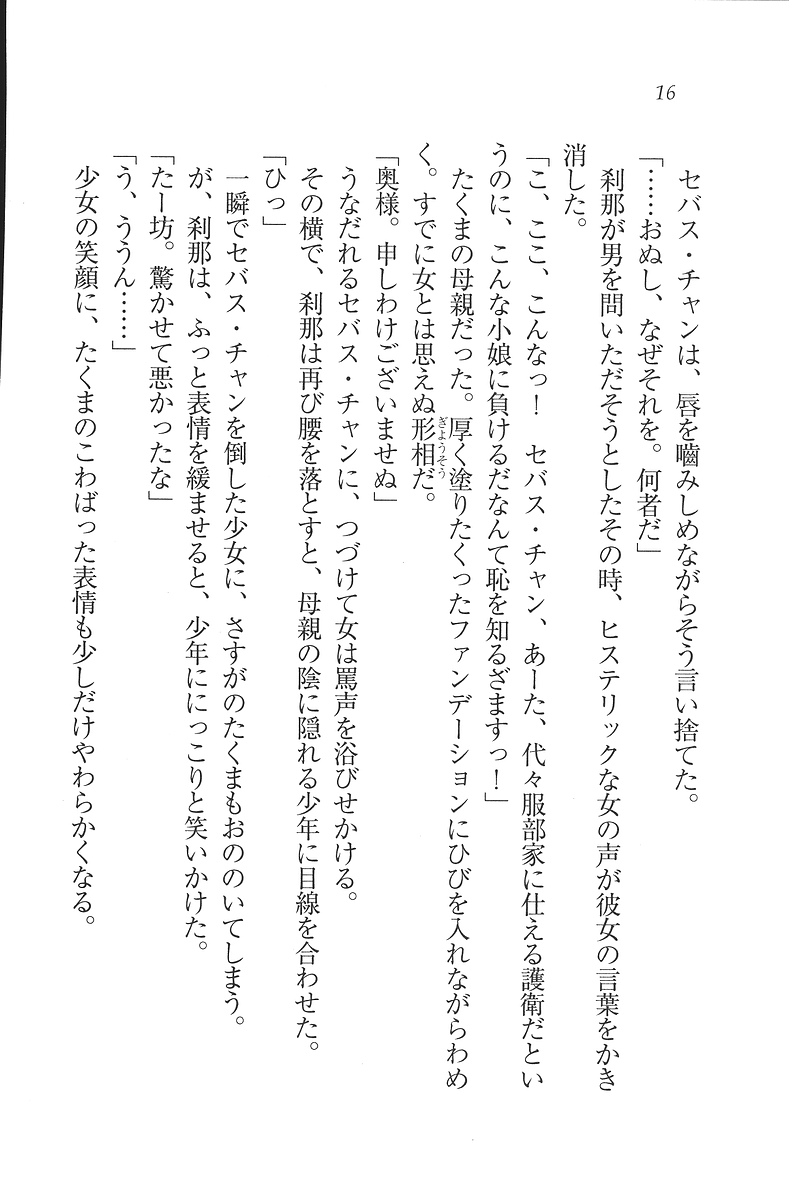 16
セバス・チャンは、唇を噛みしめながらそう言い捨てた。
「……おぬし、なぜそれを。何者だ」
刹那が男を問いただそうとしたその時、ヒステリックな女の声が彼女の言葉をかき
消した。
「こ、ここ、こんなっ！　セバス・チャン、あーた、代々服部家に仕える護衛だとい
うのに、こんな小娘に負けるだなんて恥を知るざますっ！」
たくまの母親だった。厚く塗りたくったファンデーションにひびを入れながらわめ
く。すでに女とは思えぬ形相だ。
ぎょうそう
「奥様。申しわけございませぬ」
うなだれるセバス・チャンに、つづけて女は罵声を浴びせかける。
その横で、刹那は再び腰を落とすと、母親の陰に隠れる少年に目線を合わせた。
「ひっ」
一瞬でセバス・チャンを倒した少女に、さすがのたくまもおののいてしまう。
が、刹那は、ふっと表情を緩ませると、少年ににっこりと笑いかけた。
「たー坊。驚かせて悪かったな」
「う、ううん……」
少女の笑顔に、たくまのこわばった表情も少しだけやわらかくなる。